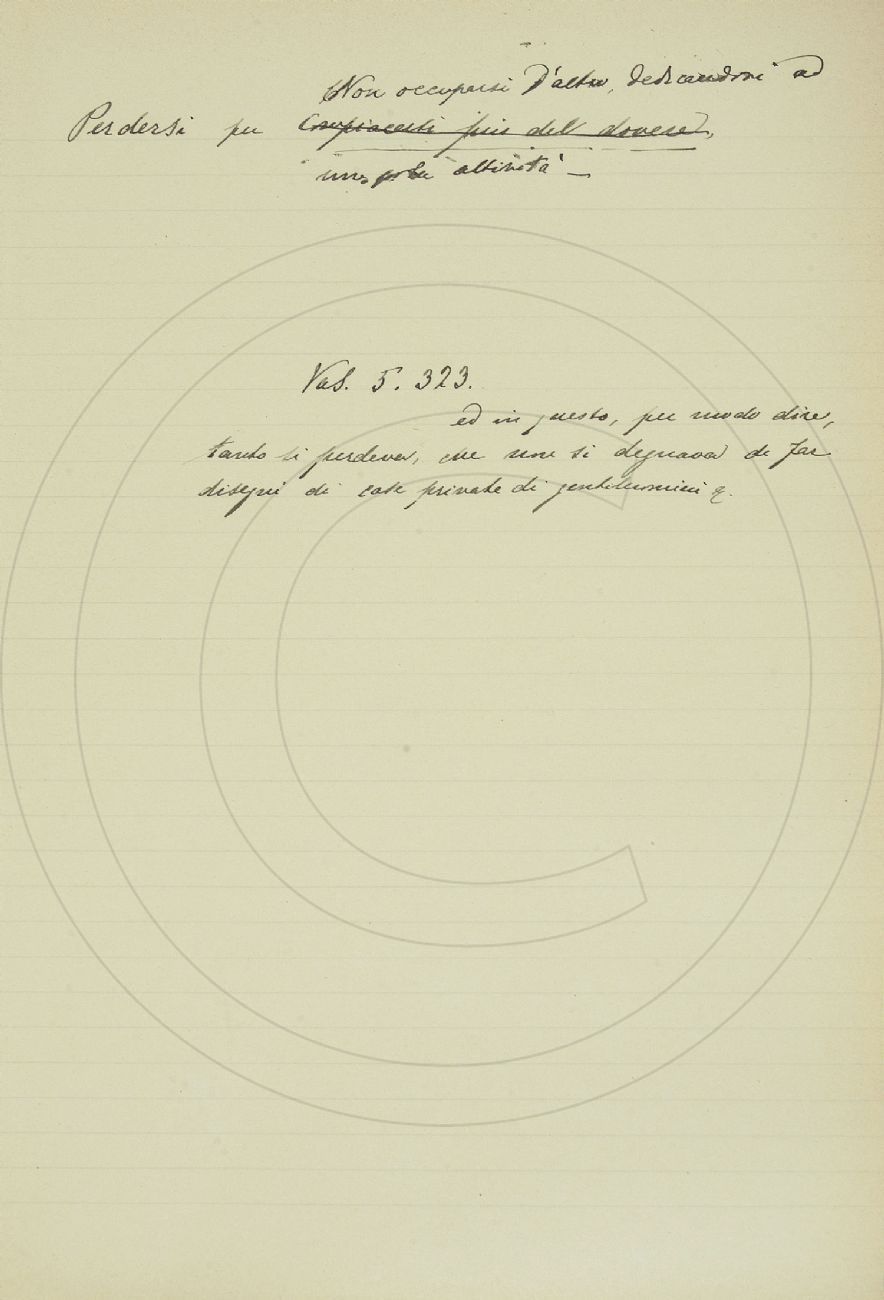 Non occuparsi d'altro, dedicandosi ad
Perdersi per Compiacersi più del dovere,
una sola attività —
Vas. 5. 323.
ed in questo, per modo dire,
tanto si perdeva, che non si degnava di far
disegni di case private di gentiluomini